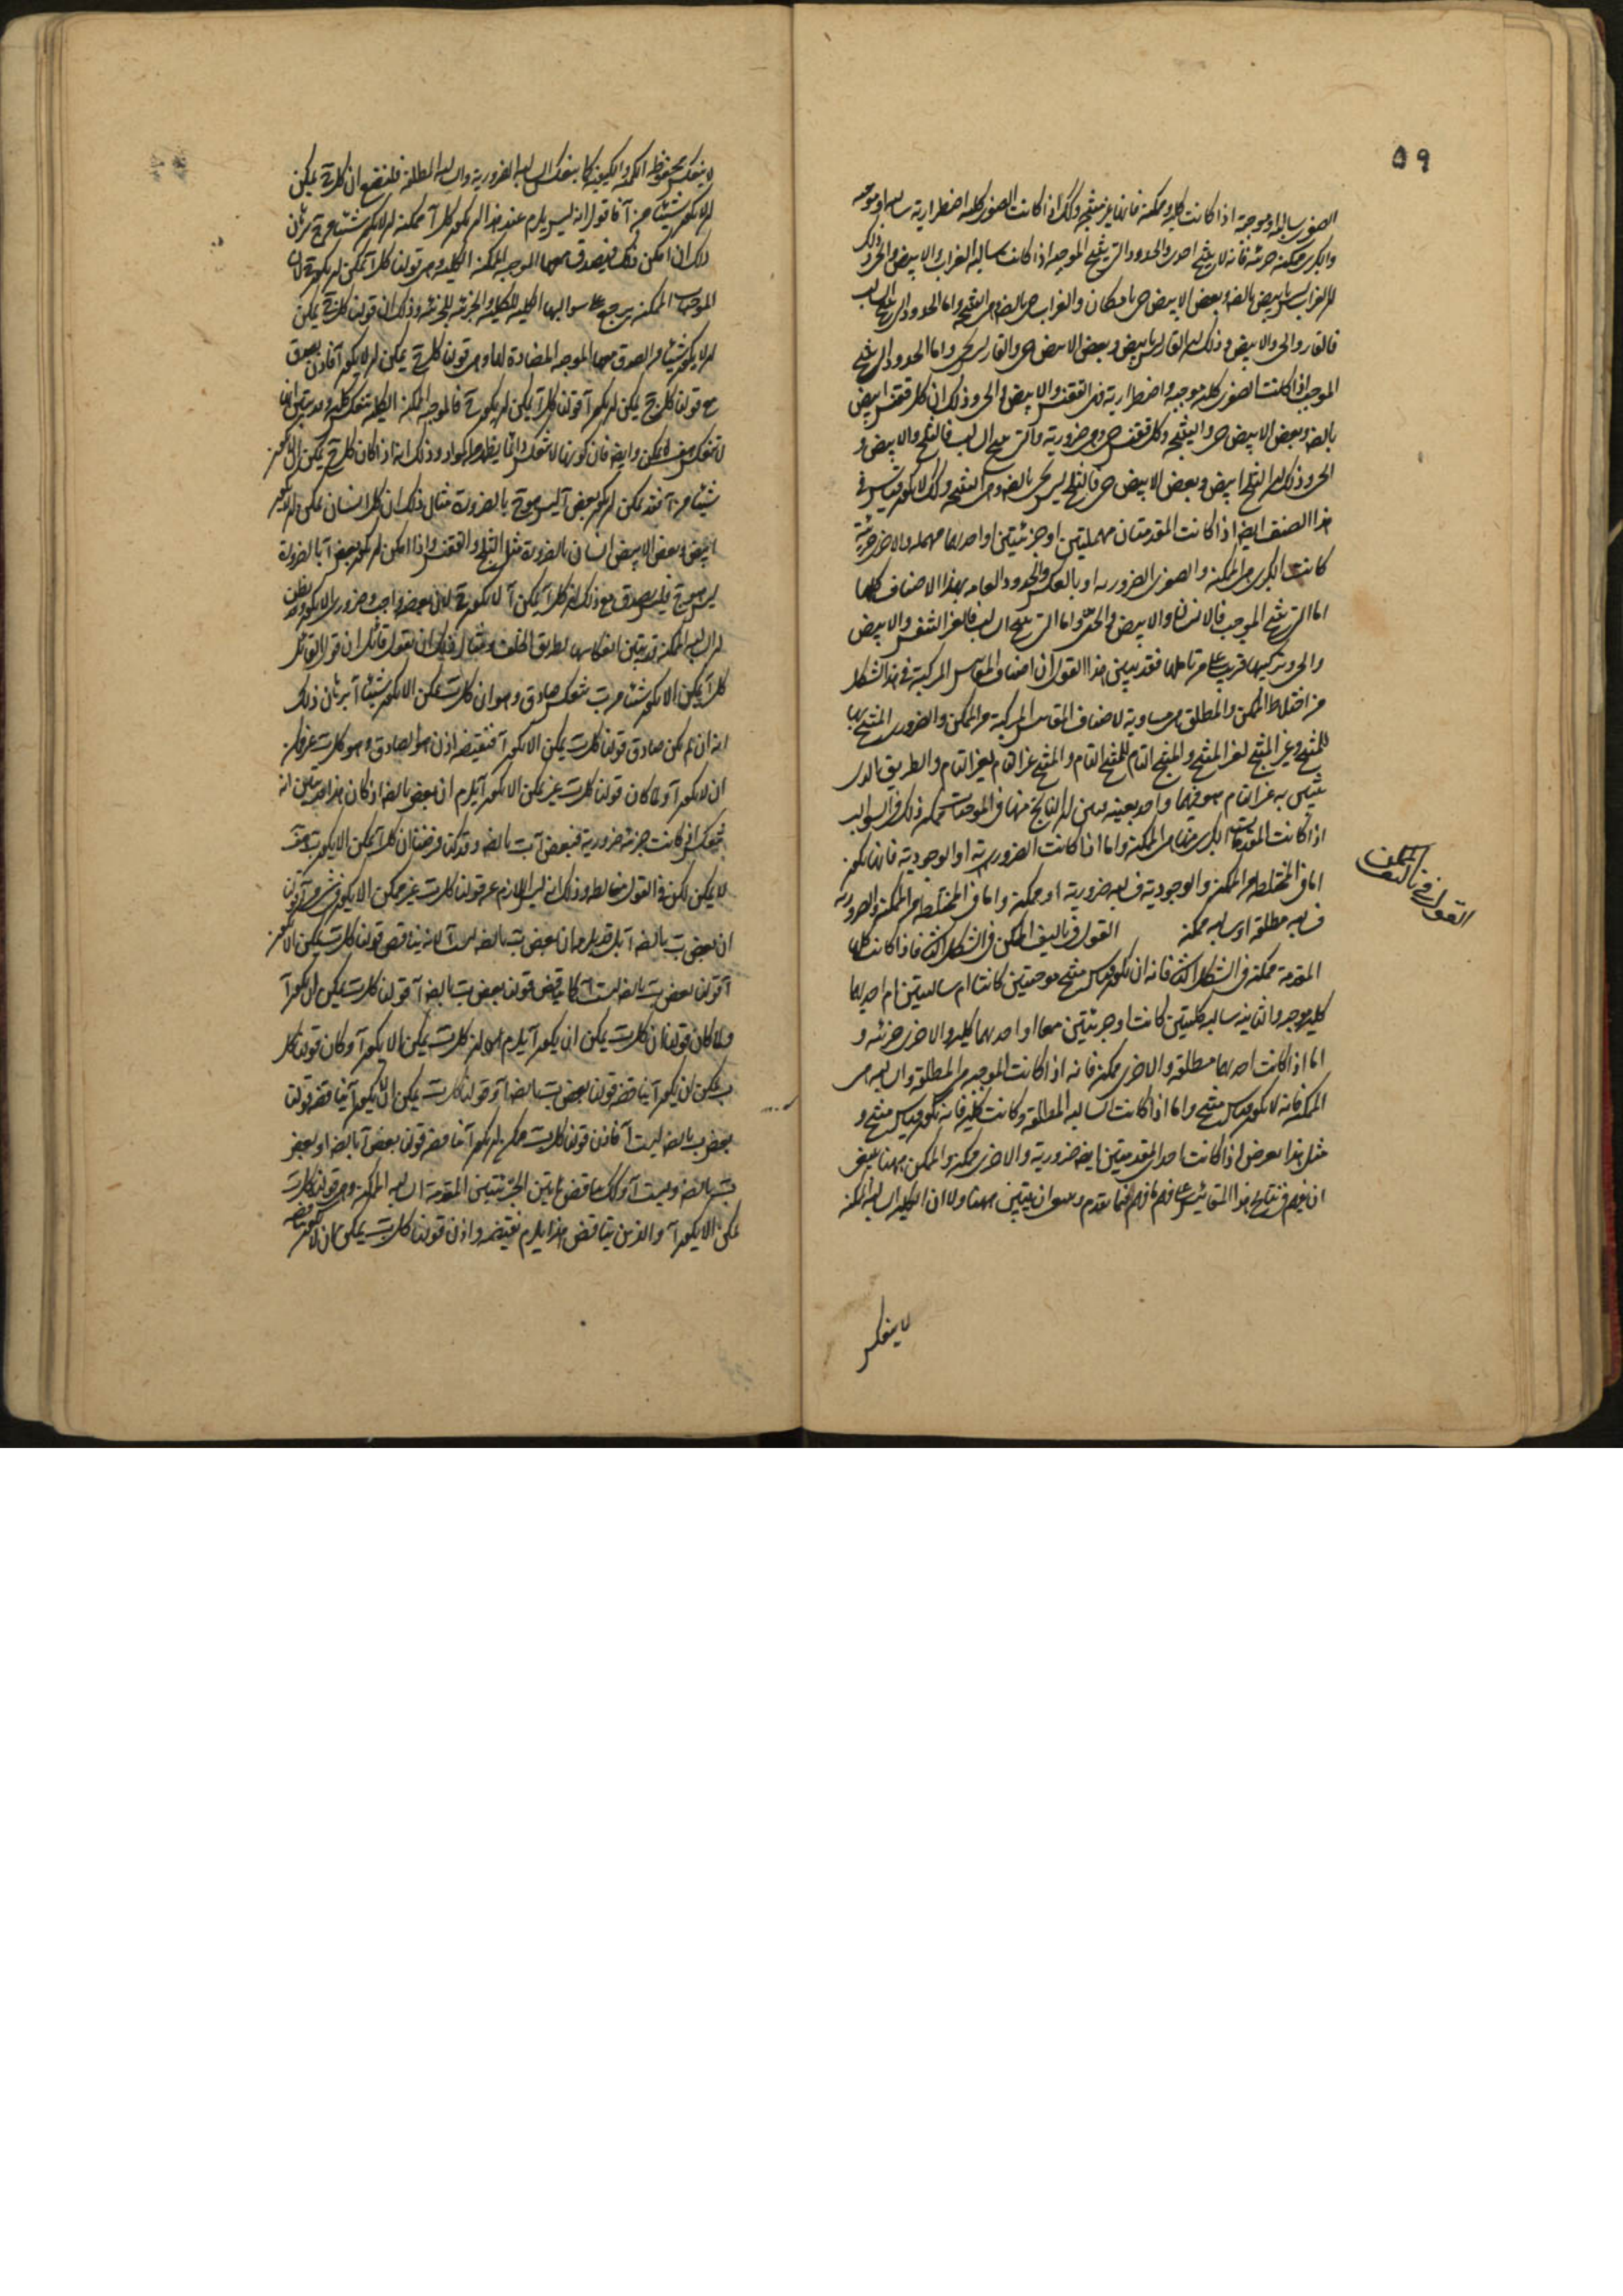 ٥٩
الصغرى سالبة او موجبة اذا كانت كلية وممكنة فانها غير منتجة وكذلك اذا كانت الصغرى كلية اضطرارية سالبة او موجبة
والكبرى ممكنة جزئية فانه لا ينتج احدى والحدود التي تنتج الموجبة اذا كانت سالبة الغراب والابيض والحي وذلك
ان الغراب ليس بابيض بالضـ وبعض الابيض حي بامكان والغراب حي بالضـ وهي النتيجة واما الحدود التي تنتج السالب
فالقار والحي والابيض وذلك ان القار ليس بابيض وبعض الابيض حي والقار ليس بحي واما الحدود التي تنتج
الموجب اذا كانت الصغرى كلية موجبة واضطرارية فهي الققنس والابيض والحي وذلك ان كل ققنس ابيض
بالضـ وبعض الابيض حي والنتيجة وكل ققنس حي وهي ضرورية والتي تنتج السالب فالثلج والابيض و
الحي وذلك ان الثلج ابيض وبعض الابيض حي فالثلج ليس بحي بالضـ وهي النتيجة وكذلك لا يكون قياس في
هذا الصنف ايضا اذا كانت المقدمتان مهملتين او جزئيتين او احدهما مهملة والاخرى جزئية
كانت الكبرى هي الممكنة والصغرى الضرورية او بالعكس والحدود العامة لهذا الاصناف كلها
اما التي تنتج الموجب فالانسان والابيض والحي واما التي تنتج السالب فالغير المتنفس والابيض
والحي وتركيبها قريب على من تاملها فقد تبين من هذا القول ان اصناف المقاييس المركبة في هذا الشكل
من اختلاط الممكن والمطلق هي مساوية لاصناف المقاييس المركبة من الممكن والضروري المنتج بها
للمنتج وغير المنتج لغير المنتج والمنتج التام للمنتج التام والمنتج غير التام لغير التام والطريق الذي
يتبين به غير التام هو فيهما واحد بعينه وتبين ان النتايج منها في الموجبات ممكنة وذلك في السوالب
اذا كانت المقدمات الكبرى منها هي الممكنة واما اذا كانت الضرورية او الوجودية فانها تكون
اما في المختلطة من الممكن والوجودية فسالبة ضرورية او ممكنة واما في المختلطة من الممكنة والضرورية
فسالبة مطلقة او سالبة ممكنة القول في تاليف الممكن في الشكل الثـ فاذا كانت كلتا
القول في تاليف الممكن
المقدمة ممكنة في الشكل الثـ فانه لن يكون قياس منتج موجبتين كانتا ام سالبتين ام احدهما
كلية موجبة والثانية سالبة كليتين كانت او جزئيتين معا او احدهما كلية والاخرى جزئية و
اما اذا كانت احدهما مطلقة والاخرى ممكنة فانه اذا كانت الموجبة هي المطلقة والسالبة هي
الممكنة فانه لا يكون قياس منتج واما اذا كانت السالبة المطلقة وكانت كلية فانه يكون قياس منتج و
مثل هذا يعرض اذا كانت احدى المقدمتين ايضا ضرورية والاخرى ممكنة والممكن ههنا ينبغي
ان يفهم في نتايج هذا المقائيس على ما فهم فيما تقدم وينبغي ان يتبين ههنا اولا ان الكلية السالبة الممكنة
لا ينعكس
لا ينعكس محفوظة الكمية والكيفية كما ينعكس السالبة الضرورية والسالبة المطلقة فلنضع ان كل ج يمكن
ان لا يكون شيئا من آ فاقول انه ليس يلزم عن هذا ان يكون كل آ ممكنة ان لا يكون شيئا من ج برهان
ذلك ان امكن ذلك فيصدق معها الموجبة الممكنة الكلية وهي قولنا كل آ يمكن ان يكون ج لان
الموجبات الممكنة يرجع على سوالبها الكلية للكلية والجزئية للجزئية وذلك ان قولنا كل ج يمكن
ان لا يكون شيئا من آ يصدق معها الموجبة المضادة لها وهي قولنا كل ج يمكن ان يكون آ فاذن يصدق
مع قولنا كل ج يمكن ان يكون آ قولنا كل آ يمكن ان يكون ج فالموجبة الممكنة الكلية تنعكس كلية وقد تبين انها
لا تنعكس وايضا فان كونها لا تنعكس دائما يظهر من المواد وذلك انه اذا كان كل ج يمكن الا يكون
شيئا من آ فقد يمكن ان يكون بعض آ ليس هو ج بالضرورة مثال ذلك ان كل انسان يمكن ان لا يكون
ابيض وبعض الابيض ليس انسان بالضرورة مثل الثلج والققنس واذا امكن ان يكون بعض آ بالضرورة
ليس هو ج فليس يصدق مع ذلك ان كل آ يمكن ان لا يكون ج لان بعضه واجب وضروري الا يكون وقد يظن
ان السالبة الممكنة قد يتبين انعكاسها بطريق الخلف ومثال ذلك ان يقول قائل ان قول القائل
كل آ يمكن الا يكون شيئا من ب تنعكس صادق وهو ان كل ب يمكن الا يكون شيئا من آ برهان ذلك
انه ان لم يكن صادق قولنا كل ب يمكن الا يكون آ فنقيضه اذن هو الصادق وهو كل ب غير ممكن
ان لا يكون آ ولما كان قولنا كل ب غير ممكن الا يكون آ يلزم ان بعض ب بالضـ آ وكان هذا قد تبين انه
تنعكس اذ كانت جزئية ضرورية فبعض آ ب بالضـ وقد كنا فرضنا ان كل آ يمكن الا يكون ب هذا خلف
لا يمكن لكن هذا القول مغالطة وذلك انه ليس اللازم عن قولنا كل ب غير ممكن الا يكون شيء من آ قولنا
ان بعض ب بالضـ آ بل قد يلزمه ان بعض ب بالضـ ليست آ لانه يناقض قولنا كل ب يمكن الا يكون
آ قولنا بعض ب بالضـ ليست آ كما يناقض قولنا بعض ب بالضـ آ قولنا كل ب يمكن ان يكون آ
ولما كان قولنا ان كل ب يمكن ان يكون آ يلزم عنه ان كل ب يمكن الا يكون آ وكان قولنا كل
ب يمكن ان يكون آ يناقضه قولنا بعض ب بالضـ آ وقولنا كل ب يمكن الا يكون آ يناقضه قولنا
بعض ب بالضـ ليست آ فاذن قولنا كل ب ممكن ان يكون آ يناقضه قولنا بعض آ بالضـ او بعض
ب بالضـ وليست آ وكذلك يناقض هاتين الجزئيتين المقدمة السالبة الممكنة وهي قولنا كل ب
يمكن الا يكون آ والذين يتناقض هذا يلزم نقيضه واذن قولنا كل ب يمكن ان لا يكون آ